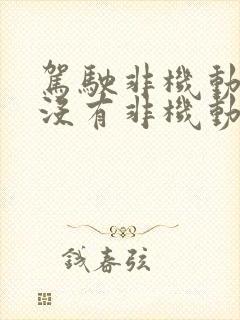 駕駛非機動
沒有非機動
鐵春弦